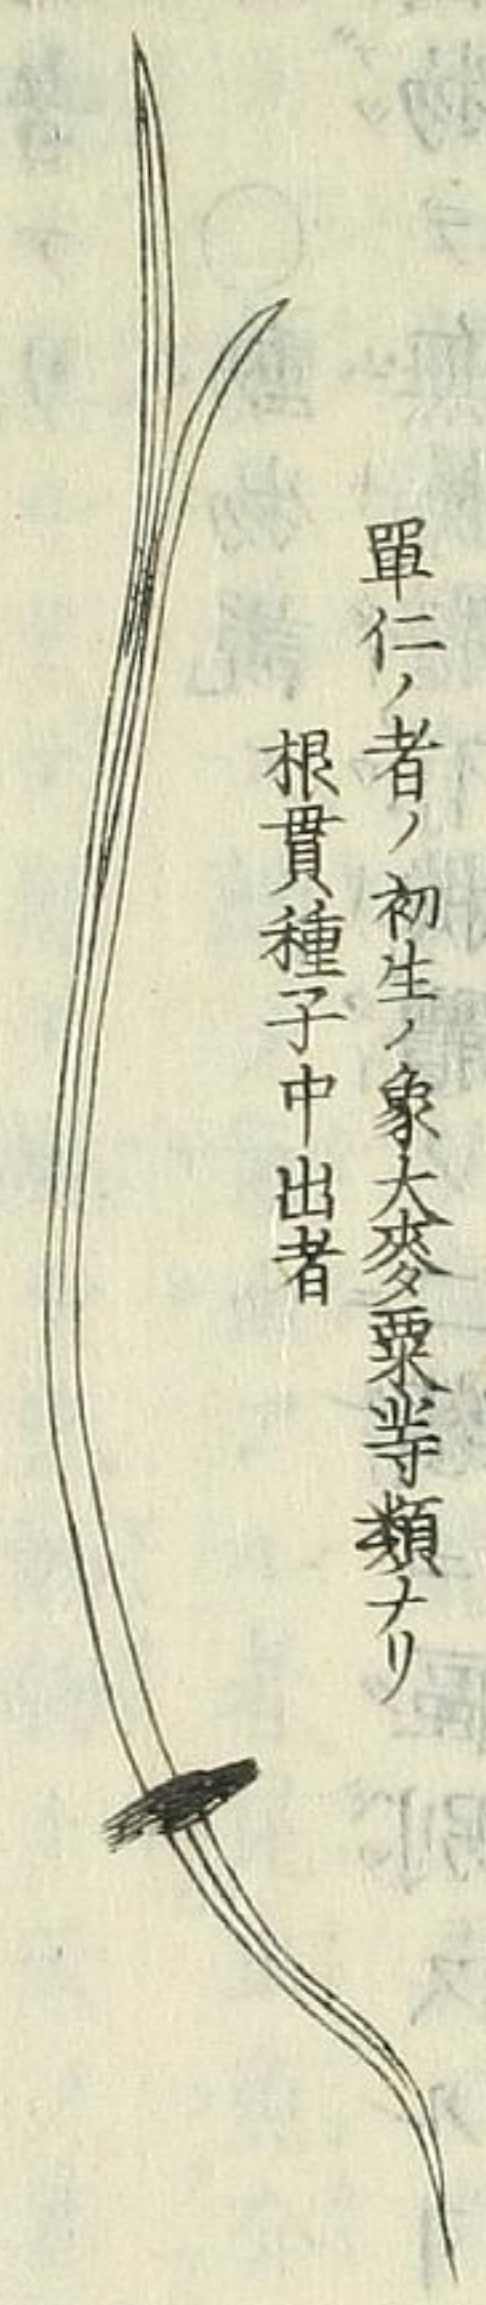 單仁ノ者ノ初生ノ象大麥粟等類ナリ
根貫種子中出者